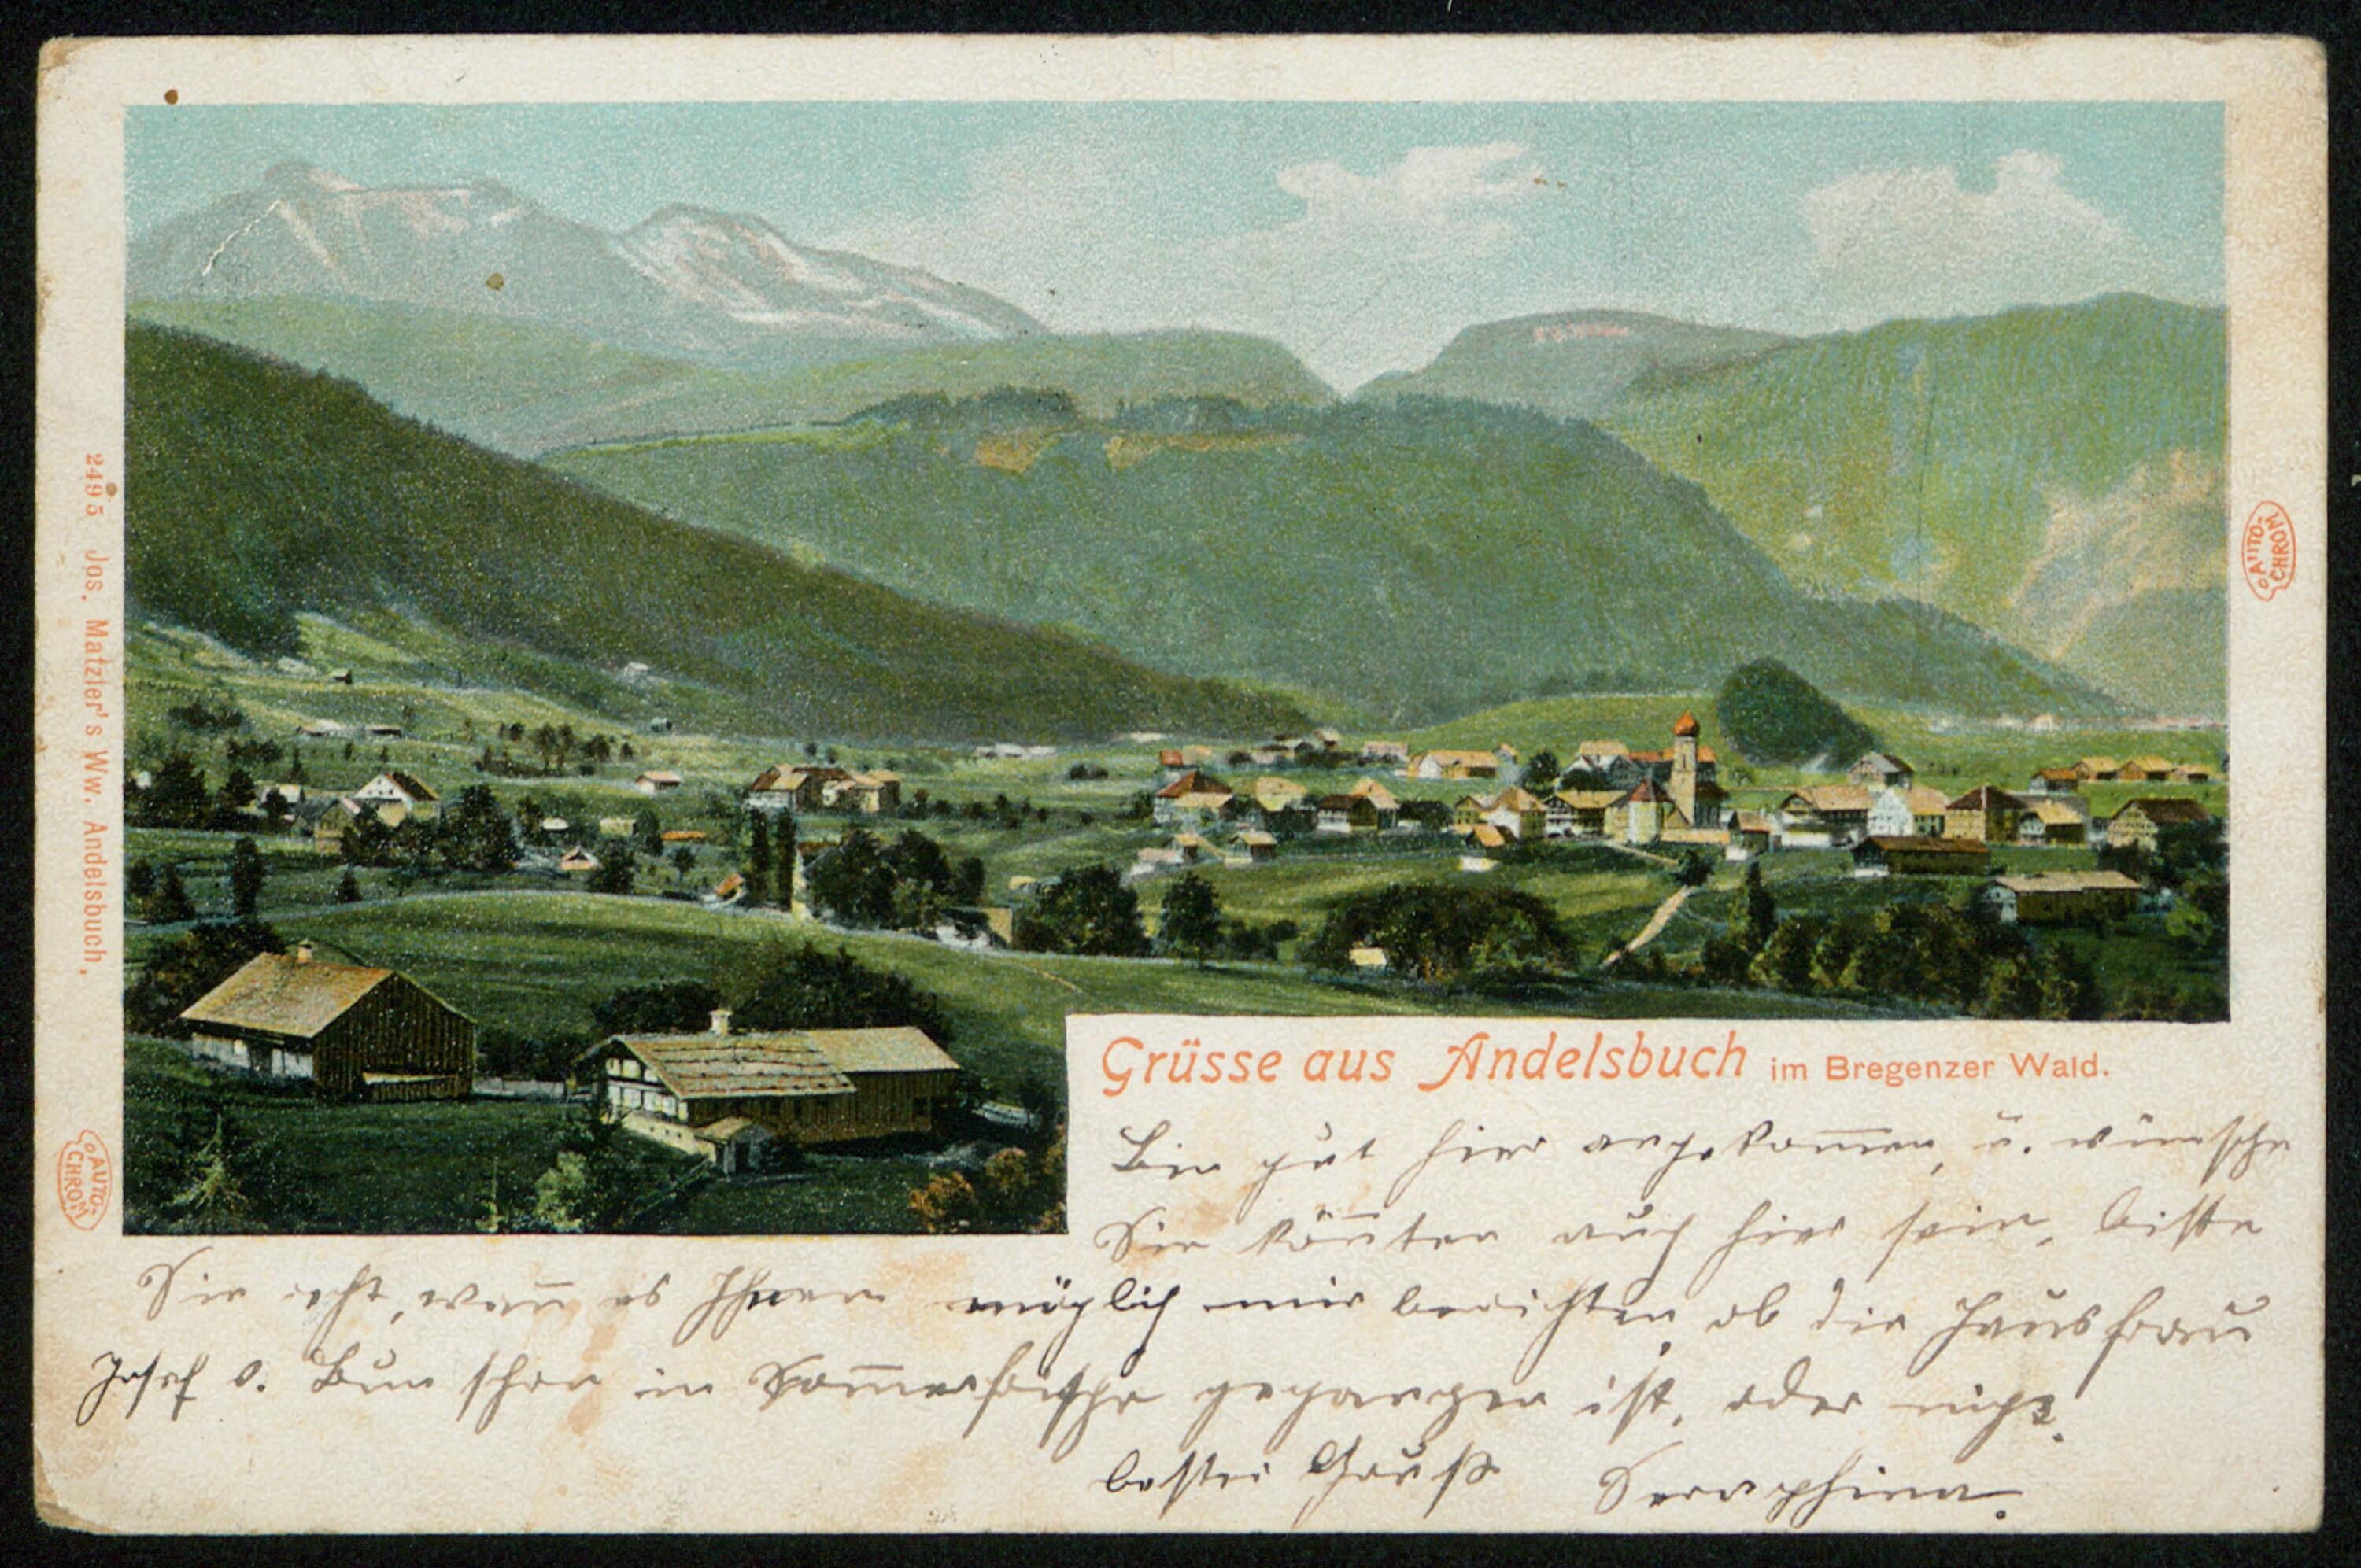 2495 Jos. Matzler's Ww. Andelsbuch,
AUTO-
CHROM
AUTO-
CHROM
Grüsse aus Andelsbuch im Bregenzer Wald.
Bin gut hier angekom̄en, u. wünsche
Sie kön̄ten auch hier sein, bitte
Sie, wen̄ es Ihnen möglich mir berichten, ob die Hausfrau
Josef in Som̄erfrische gegangen ist, oder nicht.
besten Gruß Seraphina.